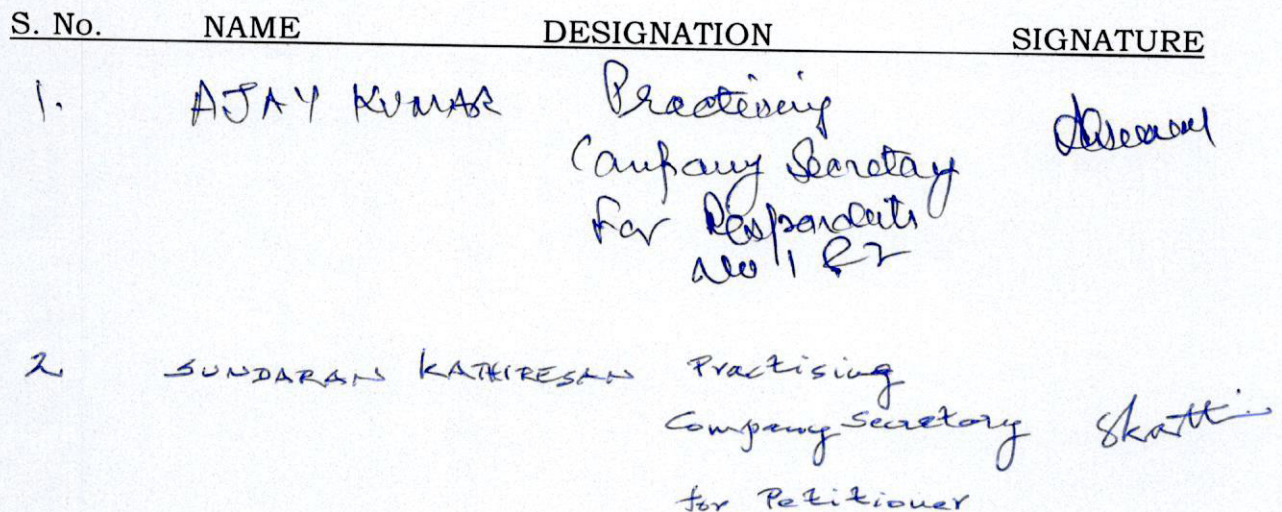 S. No. NAME DESIGNATION SIGNATURE
1. AJAY KUMAR Practising
Company Secretary
For Respondents
No 1 & 2
2 SUNDARAN KATHIRESAN Practising
Company Secretary Skatti
for Petitioner